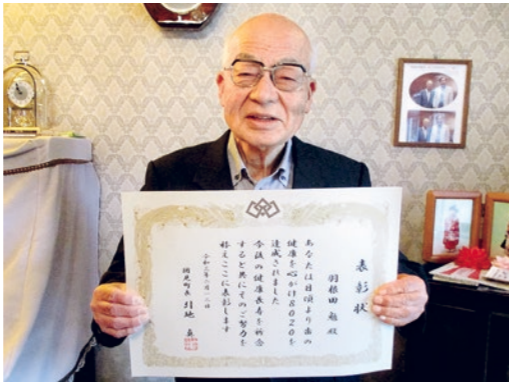 表彰状
羽根田 殿
あなたは日頃より歯の
健康を心がけ8020を
達成されました
今後の健康長寿を祈念
すると共にそのご努力を
称えここに表彰します
令和三年二月
国見町長 引地 真